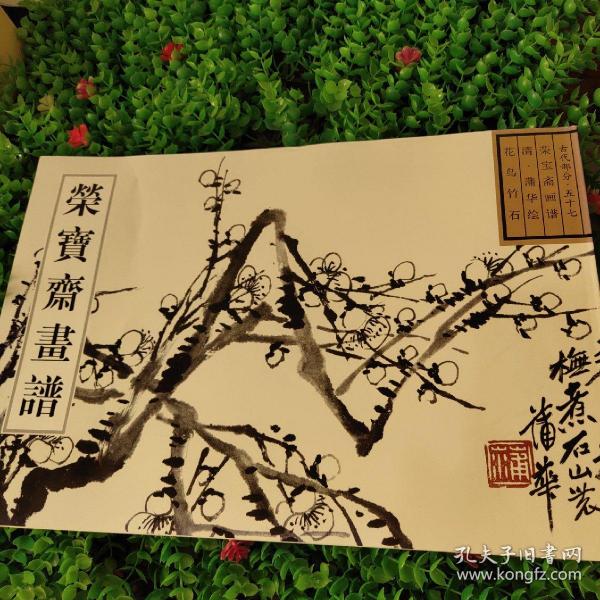 榮寶齋畫譜
古代部分·五十七
荣宝斋画谱
清·蒲华绘
花鸟竹石
橅煮石山農
蒲華
孔夫子旧书网
www.kongfz.com